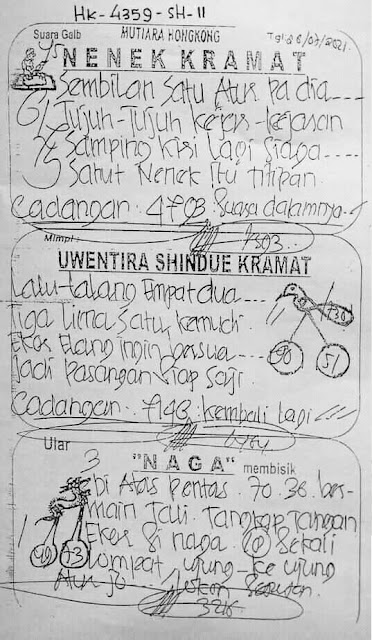 HK-4359-SH-11
Suara Gaib MUTIARA HONGKONG Tgl 26/07/2021
NENEK KRAMAT
Sembilan Satu Atur pa dia
Tujuh-Tujuh kejar-kejaran
Samping kisi lagi siaga
Sahut Nenek Itu titipan
Cadangan : 4703
7303
Mimpi :
UWENTIRA SHINDUE KRAMAT
Lalu-lalang Empat dua
Tiga Lima Satu kemudi
Ekor Elang ingin bersua
Jadi pasangan siap saji
90 51
Cadangan : 7143 kembali lagi
Ular
3 "NAGA" membisik
Atas pentas 70.36 ber-
main Tali Tangkap Tangan
Ekor Si naga sekali
lompat ujung-ke ujung
73
3216